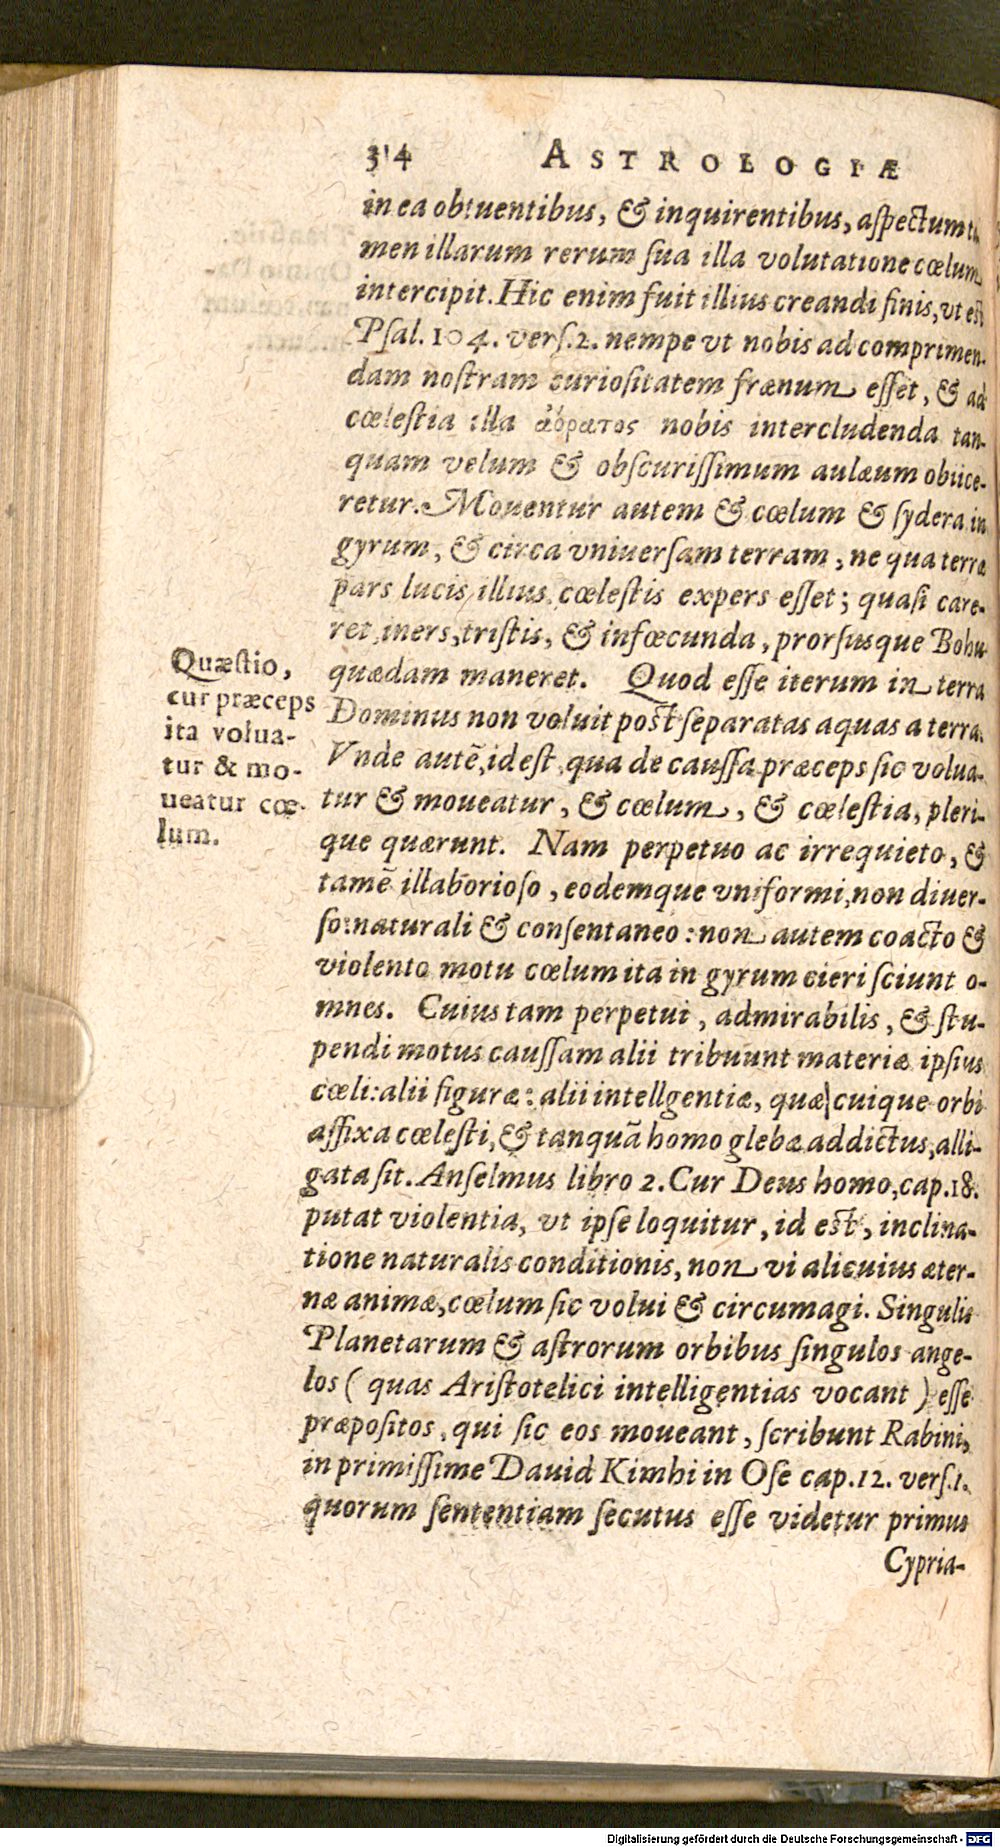 314 ASTROLOGIÆ
in ea obtuentibus, & inquirentibus, aſpectum ta
men illarum rerum ſua illa volutatione cœlum
intercipit. Hic enim fuit illius creandi finis, vt eſt
Pſal. 104. verſ. 2. nempe vt nobis ad comprimen-
dam noſtram curioſitatem frænum eſſet, & ad
cœleſtia illa ἀόρατος nobis intercludenda tan-
quam velum & obſcuriſſimum aulæum obiice-
retur. Mouentur autem & cœlum & ſydera in
gyrum, & circa vniuerſam terram, ne qua terræ
pars lucis illius cœleſtis expers eſſet; quaſi care-
ret iners, triſtis, & infœcunda, prorſusque Bohu
quædam maneret. Quod eſſe iterum in terra
Dominus non voluit poſt ſeparatas aquas a terra.
Vnde autẽ, id eſt, qua de cauſſa præceps ſic volua-
tur & moueatur, & cœlum, & cœleſtia, pleri-
que quærunt. Nam perpetuo ac irrequieto, &
tamẽ illaborioſo, eodemque vniformi, non diuer-
ſo: naturali & conſentaneo: non autem coacto &
violento motu cœlum ita in gyrum cieri ſciunt o-
mnes. Cuius tam perpetui, admirabilis, & ſtu-
pendi motus cauſſam alii tribuunt materiæ ipſius
cœli: alii figuræ: alii intellgentiæ, quæ cuique orbi
affixa cœleſti, & tanquã homo glebæ addictus, alli-
gata ſit. Anſelmus libro 2. Cur Deus homo, cap. 18.
putat violentia, vt ipſe loquitur, id eſt, inclina-
tione naturalis conditionis, non vi alicuius æter-
næ animæ, cœlum ſic volui & circumagi. Singulis
Planetarum & aſtrorum orbibus ſingulos ange-
los ( quas Ariſtotelici intelligentias vocant ) eſſe
præpoſitos, qui ſic eos moueant, ſcribunt Rabini,
in primiſſime Dauid Kimhi in Oſe cap. 12. verſ. 1.
quorum ſententiam ſecutus eſſe videtur primus
Cypria-
Quæſtio,
cur præceps
ita volua-
tur & mo-
ueatur cœ-
lum.
Digitalisierung gefördert durch die Deutsche Forschungsgemeinschaft - DFG